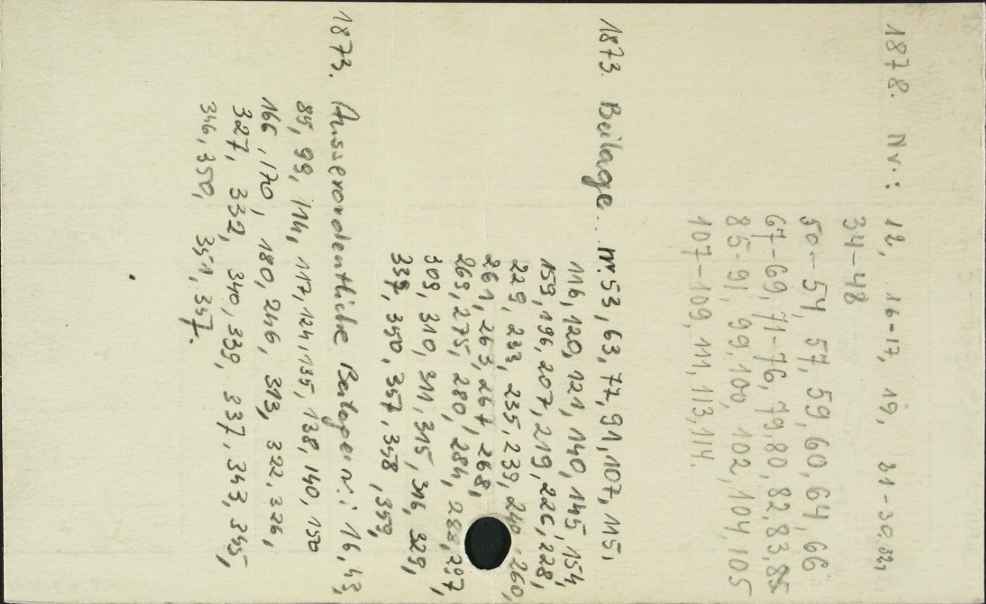 1878. Nr.: 12, 16-17, 19, 21-30, 32,
34-48
50-54, 57, 59, 60, 64, 66
67-69, 71-76, 79, 80, 82, 83, 85
85-91, 99, 100, 102, 104, 105
107-109, 111, 113, 114.
1873. Beilage. Nr. 53, 63, 77, 91, 107, 115,
116, 120, 121, 140, 145, 154,
159, 196, 207, 219, 226, 228,
229, 233, 235, 239, 240, 260,
261, 263, 267, 268,
269, 275, 280, 284, 287
309, 310, 311, 315, 316, 329,
337, 350, 357, 358, 359,
1873. Ausserordentliche Beilage n: 16, 43,
85, 99, 114, 117, 124, 135, 138, 140, 150
166, 170, 180, 246, 313, 322, 326,
327, 332, 340, 339, 337, 343, 345,
346, 350, 351, 357.